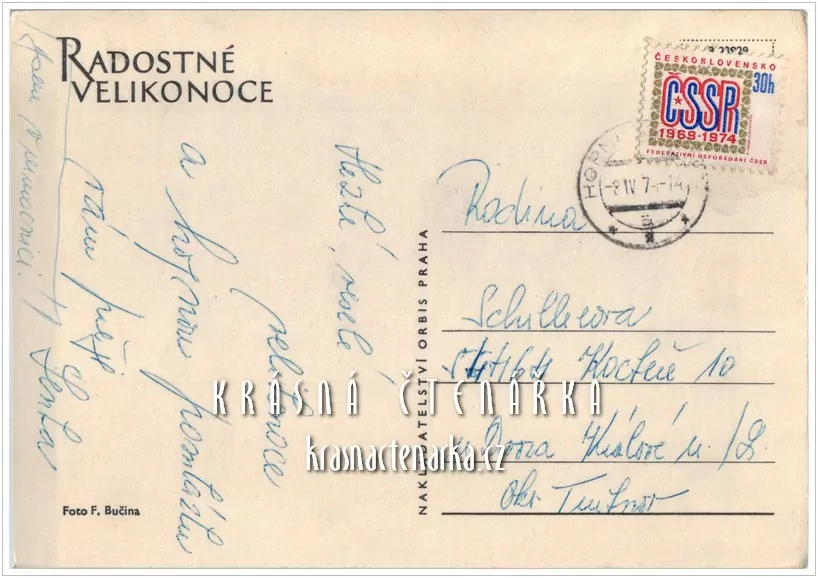 RADOSTNÉ
VELIKONOCE
Hezké, veselé
velikonoce
a hojnou pomlázku
vám přeje
Lenka
Jsem v nemocnici.
Foto F. Bučina
NAKLADATELSTVÍ ORBIS PRAHA
ČESKOSLOVENSKO
30h
ČSSR
1969-1974
FEDERATIVNÍ USPOŘÁDÁNÍ ČSSR
HORNÍ
-8 IV 7 -14
Rodina
Schillerova
54461 Kocbeře 10
u Dvora Králové n./L.
okr. Trutnov
KRÁSNÁ ČTENÁŘKA
krasnactenarka.cz